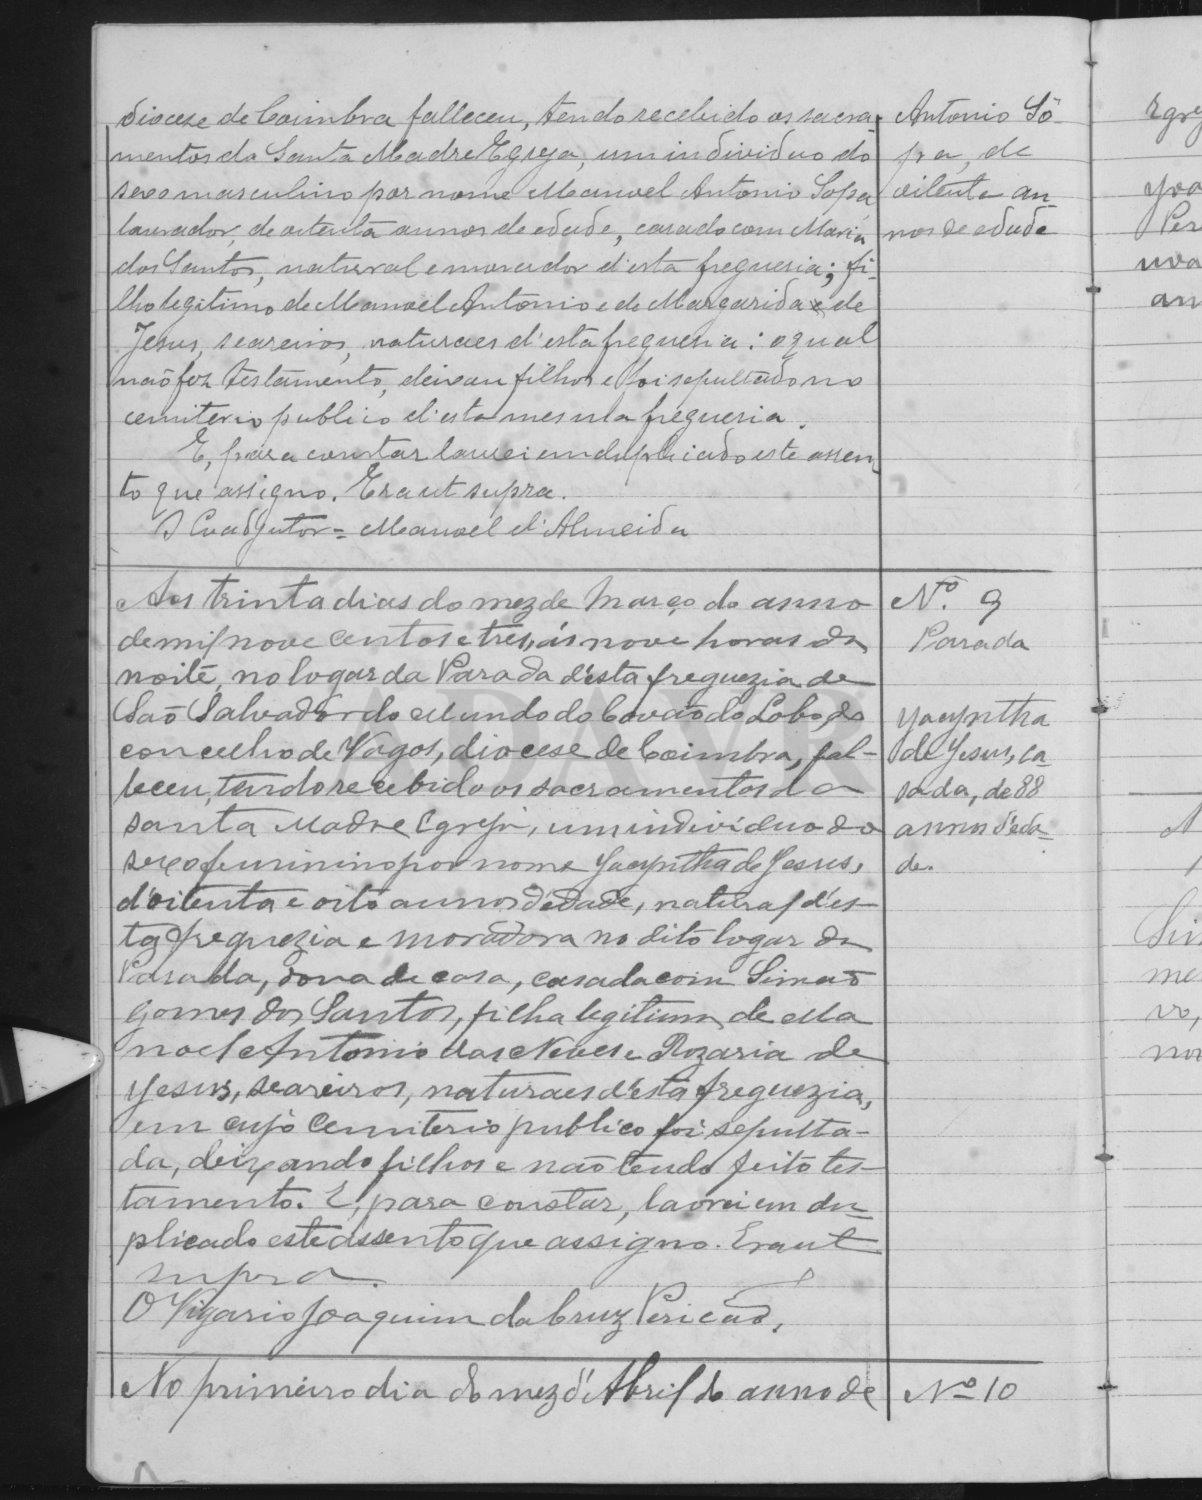 diocese de Coimbra falleceu, tendo recebido os sacra-
mentos da Santa Madre Egreja, um individuo do
sexo masculino por nome Manoel Antonio Sopa
lavrador, de oitenta annos de edade, casado com Maria
dos Santos, natural e morador d'esta freguesia; fi-
lho legitimo de Manoel Antonio e de Margarida de
Jesus, seareiros, naturaes d'esta freguesia: o qual
não fez testamento, deixou filhos e foi sepultado no
cemiterio publico d'esta mesma freguesia.
E, para constar lavrei em duplicado este assen-
to que assigno. Era ut supra.
O Coadjutor = Manoel d'Almeida
Antonio Sô-
pa, de
oitenta an-
nos de edade
Aos trinta dias do mez de Março do anno
de mil nove centos e tres, ás nove horas da
noite, no logar da Parada d'esta freguezia de
São Salvador do Mundo do Covão do Lobo, do
concelho de Vagos, diocese de Coimbra, fal-
leceu, tendo recebido os sacramentos da
santa Madre Egreja, um individuo do
sexo feminino por nome Jacyntha de Jesus,
d'oitenta e oito annos d'edade, natural d'es-
ta freguezia e moradora no dito logar da
Parada, dona de casa, casada com Simão
Gomes dos Santos, filha legitima de Ma
noel Antonio das Neves e Rozaria de
Jesus, seareiros, naturaes d'esta freguezia,
em cujo Cemiterio publico foi sepulta-
da, deixando filhos e não tendo feito tes-
tamento. E, para constar, lavrei em du-
plicado este assento que assigno. Era ut
supra.
O Vigario Joaquim da Cruz Pericão,
Nº. 9
Parada
Jacyntha
de Jesus, ca-
sada, de 88
annos d'eda-
de.
No primeiro dia do mez d'Abril do anno de
Nº 10
ADAVR